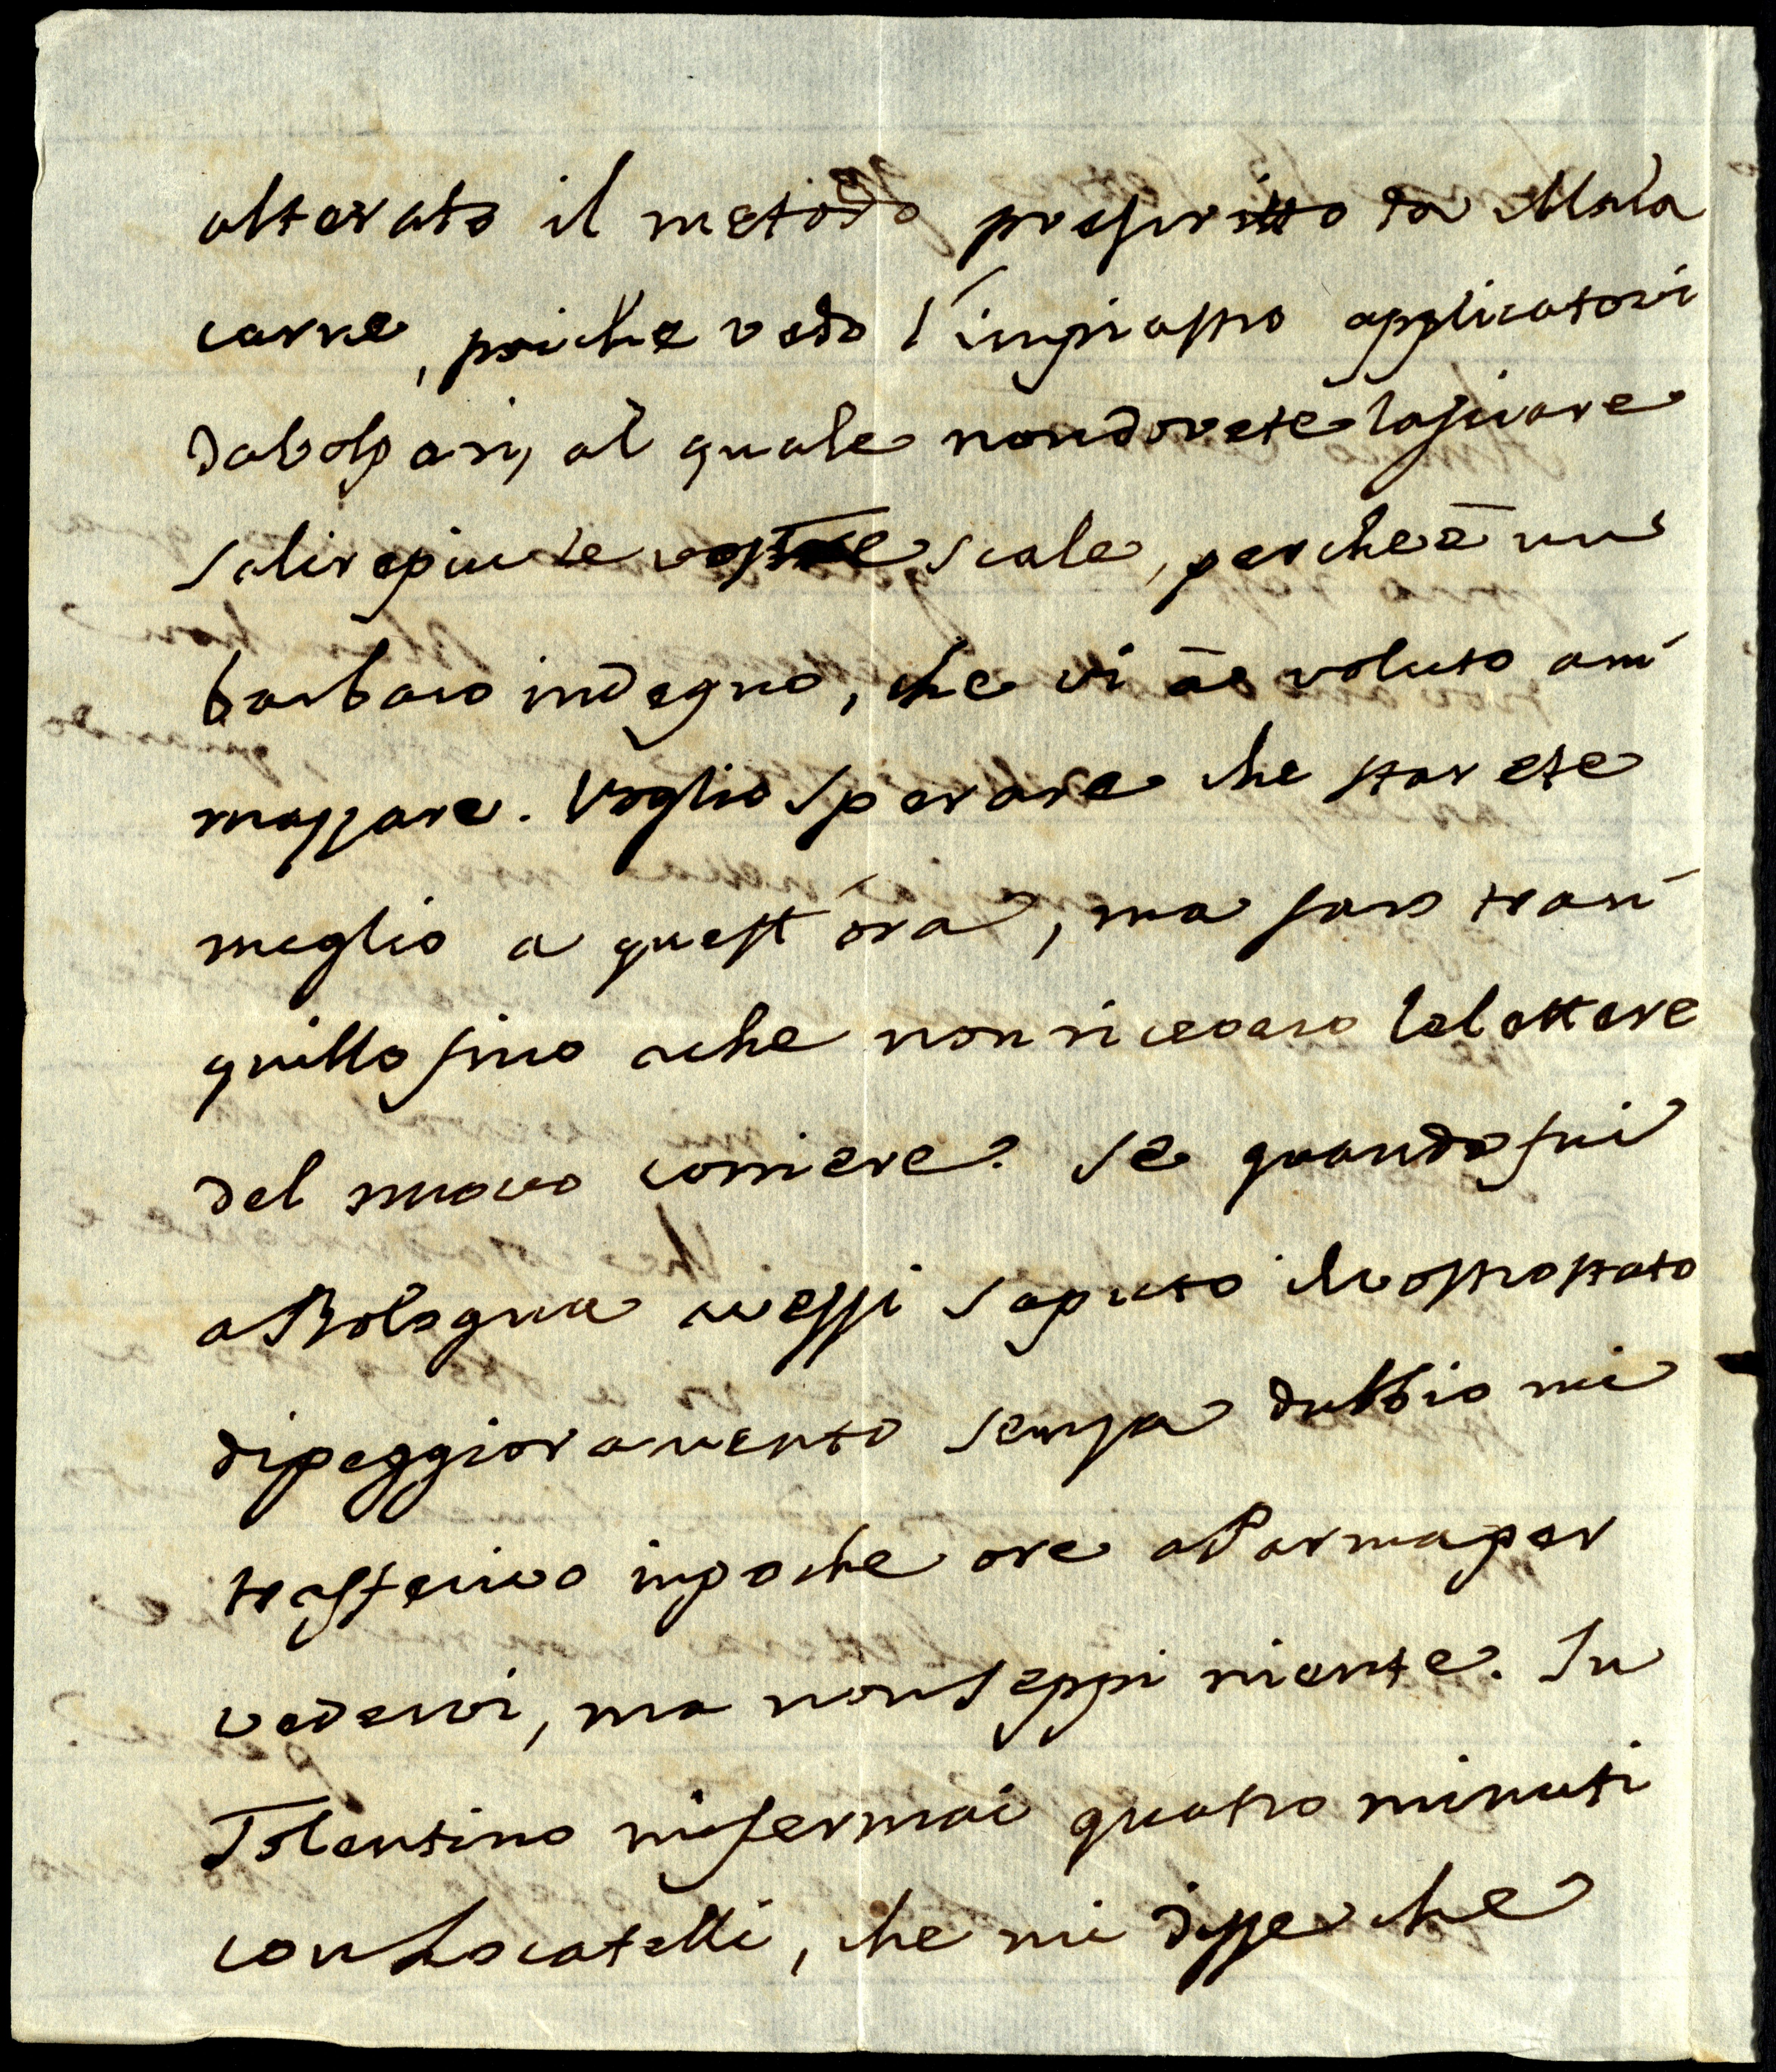 alterato il metodo prescritto da Mala
carne, poiche vedo l'impiastro applicatovi
da Volpari, al quale non dovete lasciare
salire piu le vostre scale, perche è un
barbaro indegno, che vi àe voluto am
mazzare. Voglio sperare che starete
meglio a quest'ora, ma saro tran
quillo sino a che non ricevero le lettere
del nuovo corriere. Se quando fui
a Bologna avessi saputo il vostro stato
di peggioramento senza dubbio mi
trasferivo in poche ore a Parma per
vedervi, ma non seppi niente. In
Tolentino mi fermai quatro minuti
con Locatelli, che mi disse che